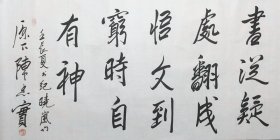 書從疑
處翻成
悟文到
窮時自
有神
壬辰夏 紀曉嵐句
原下陳忠實